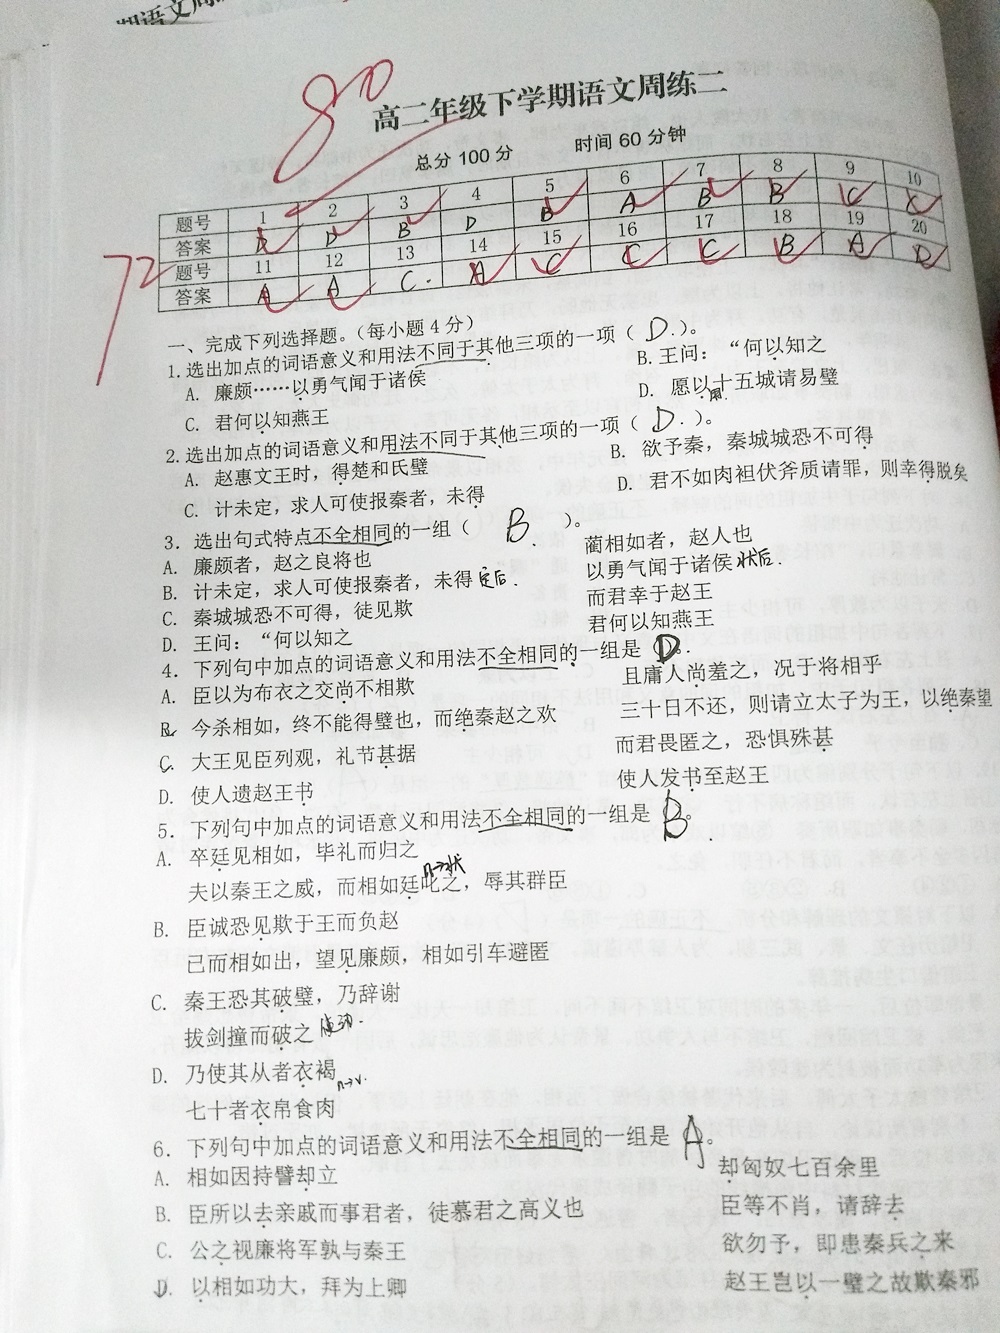 80
高二年级下学期语文周练二
总分 100 分 时间 60 分钟
72
题号 1 2 3 4 5 6 7 8 9 10
答案 D D B D B A B B C C
题号 11 12 13 14 15 16 17 18 19 20
答案 A A C A C C C B A D
一、完成下列选择题。（每小题 4 分）
1. 选出加点的词语意义和用法不同于其他三项的一项（ D ）。
A. 廉颇……以勇气闻于诸侯 B. 王问：“何以知之
C. 君何以知燕王 D. 愿以十五城请易璧
用
2. 选出加点的词语意义和用法不同于其他三项的一项（ D ）。
A. 赵惠文王时，得楚和氏璧 B. 欲予秦，秦城城恐不可得
C. 计未定，求人可使报秦者，未得 D. 君不如肉袒伏斧质请罪，则幸得脱矣
3. 选出句式特点不全相同的一组（ B ）。
A. 廉颇者，赵之良将也 蔺相如者，赵人也
B. 计未定，求人可使报秦者，未得 定后. 以勇气闻于诸侯 状后.
C. 秦城城恐不可得，徒见欺 而君幸于赵王
D. 王问：“何以知之 君何以知燕王
4. 下列句中加点的词语意义和用法不全相同的一组是（ D ）.
A. 臣以为布衣之交尚不相欺 且庸人尚羞之，况于将相乎
B. 今杀相如，终不能得璧也，而绝秦赵之欢 三十日不还，则请立太子为王，以绝秦望
C. 大王见臣列观，礼节甚据 而君畏匿之，恐惧殊甚
D. 使人遗赵王书 使人发书至赵王
5. 下列句中加点的词语意义和用法不全相同的一组是 B。
A. 卒廷见相如，毕礼而归之
n→状
夫以秦王之威，而相如廷叱之，辱其群臣
B. 臣诚恐见欺于王而负赵
已而相如出，望见廉颇，相如引车避匿
C. 秦王恐其破璧，乃辞谢
拔剑撞而破之 使动.
D. 乃使其从者衣褐
n→v.
七十者衣帛食肉
6. 下列句中加点的词语意义和用法不全相同的一组是 A。
A. 相如因持璧却立 却匈奴七百余里
B. 臣所以去亲戚而事君者，徒慕君之高义也 臣等不肖，请辞去
C. 公之视廉将军孰与秦王 欲勿予，即患秦兵之来
D. 以相如功大，拜为上卿 赵王岂以一璧之故欺秦邪